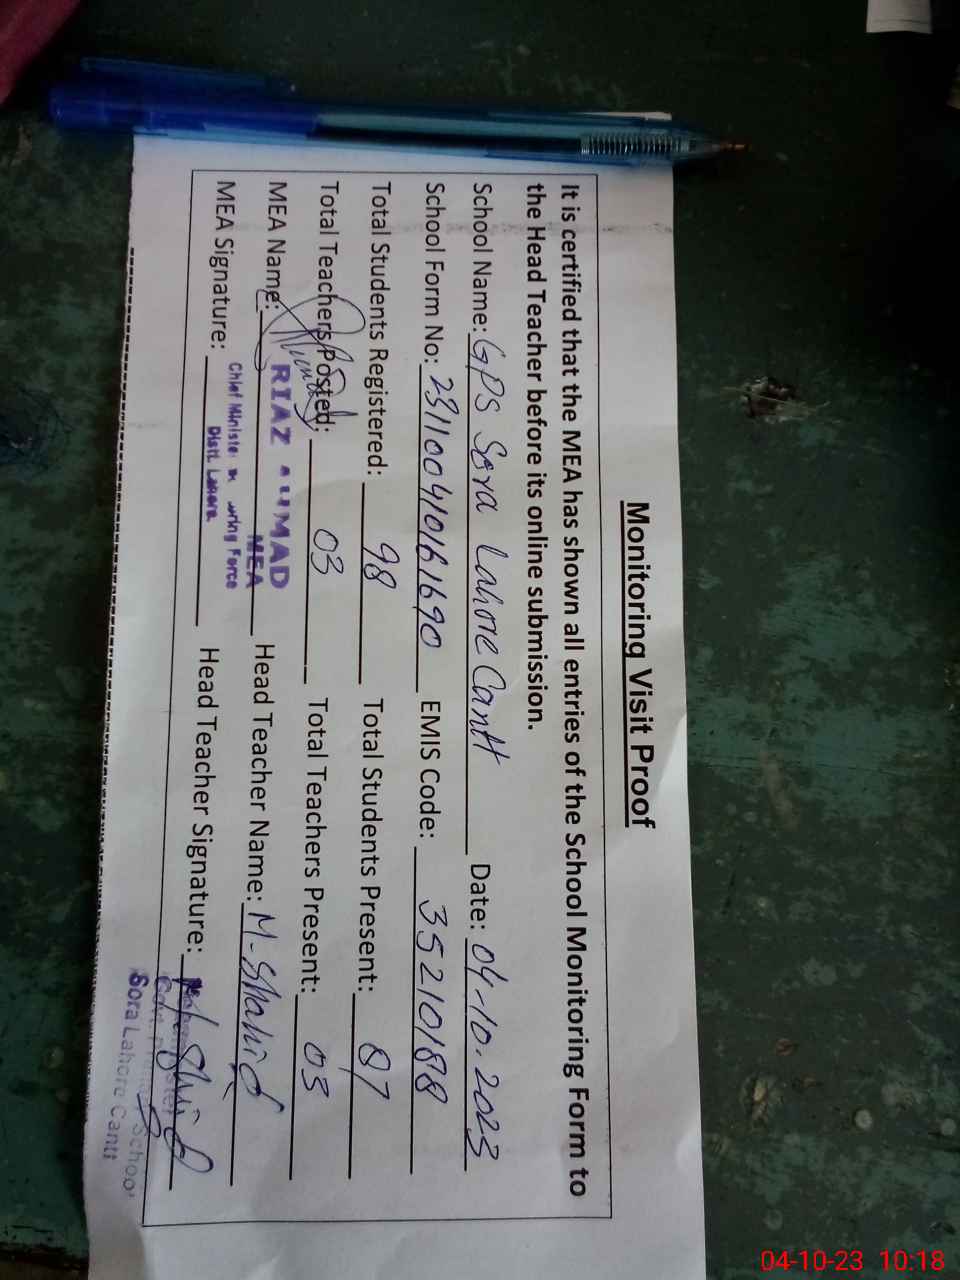 Monitoring Visit Proof
It is certified that the MEA has shown all entries of the School Monitoring Form to
the Head Teacher before its online submission.
School Name: GPS Sora Lahore Cantt Date: 04-10-2023
School Form No: 231100410161690 EMIS Code: 35210188
Total Students Registered: 98 Total Students Present: 87
Total Teachers Posted: 03 Total Teachers Present: 03
MEA Name: RIAZ AHMAD MEA Head Teacher Name: M-Shahid
MEA Signature: Chief Minister Force Head Teacher Signature:
Distt. Lahore
School
Sora Lahore Cantt
04-10-23 10:18